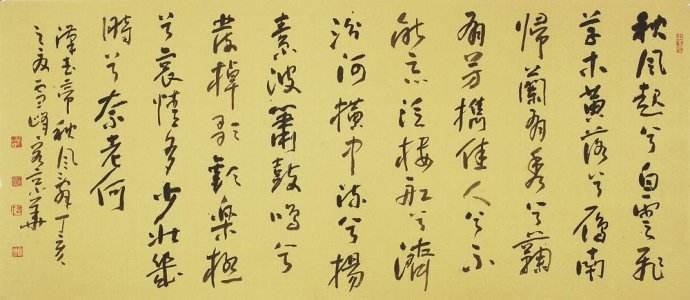 秋風起兮白雲飛
草木黃落兮鴈南
歸蘭有秀兮蘜
有芳攜佳人兮不
能忘泛樓舡兮濟
汾河橫中流兮揚
素波簫鼓鳴兮
發棹歌歡樂極
兮哀情多少壯幾
時兮奈老何
漢武帝秋風辭丁亥
之夏雪峰京華